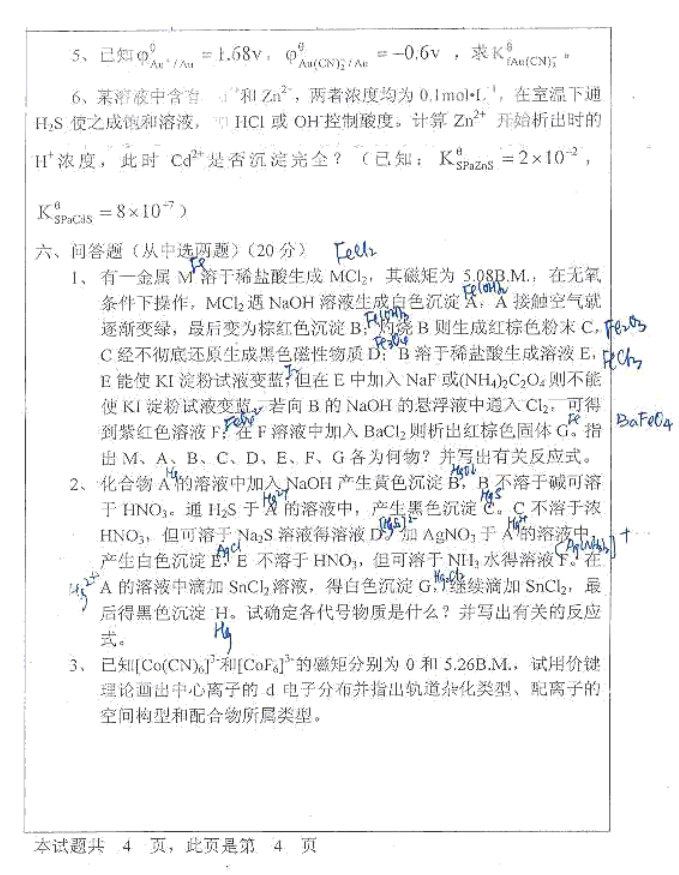 5、已知φ^θ_{Au⁺/Au} = 1.68v，φ^θ_{Au(CN)₂⁻/Au} = −0.6v ，求K^θ_{fAu(CN)₂⁻}。
6、某溶液中含有 和 Zn²⁺，两者浓度均为 0.1mol•L⁻¹，在室温下通
H₂S 使之成饱和溶液， HCl 或 OH⁻控制酸度。计算 Zn²⁺ 开始析出时的
H⁺浓度，此时 Cd²⁺是否沉淀完全？（已知：K^θ_{SPaZnS} = 2×10⁻²，
K^θ_{SPaCdS} = 8×10⁻⁷）
六、问答题（从中选两题）（20分） FeCl₂
Fe
1、有一金属 M 溶于稀盐酸生成 MCl₂，其磁矩为 5.08B.M.，在无氧
Fe(OH)₂
条件下操作，MCl₂遇 NaOH 溶液生成白色沉淀 A，A 接触空气就
Fe(OH)₃
逐渐变绿，最后变为棕红色沉淀 B；灼烧 B 则生成红棕色粉末 C， Fe₂O₃
Fe₃O₄
C 经不彻底还原生成黑色磁性物质 D；B 溶于稀盐酸生成溶液 E， FeCl₃
I₂
E 能使 KI 淀粉试液变蓝；但在 E 中加入 NaF 或(NH₄)₂C₂O₄则不能
使 KI 淀粉试液变蓝。若向 B 的 NaOH 的悬浮液中通入 Cl₂，可得
到紫红色溶液 F；在 F 溶液中加入 BaCl₂则析出红棕色固体 G。指 BaFeO₄
出 M、A、B、C、D、E、F、G 各为何物？并写出有关反应式。
Hg HgO↓
2、化合物 A 的溶液中加入 NaOH 产生黄色沉淀 B，B 不溶于碱可溶
Hg²⁺ HgS
于 HNO₃。通 H₂S 于 A 的溶液中，产生黑色沉淀 C。C 不溶于浓
[HgS₂]²⁻ Hg²⁺
HNO₃，但可溶于 Na₂S 溶液得溶液 D。加 AgNO₃于 A 的溶液中，
AgCl [Ag(NH₃)₂]⁺
产生白色沉淀 E，E 不溶于 HNO₃，但可溶于 NH₃水得溶液 F。在
Hg²⁺ Hg₂Cl₂
A 的溶液中滴加 SnCl₂溶液，得白色沉淀 G，继续滴加 SnCl₂，最
后得黑色沉淀 H。试确定各代号物质是什么？并写出有关的反应
式。 Hg
3、已知[Co(CN)₆]³⁻和[CoF₆]³⁻的磁矩分别为 0 和 5.26B.M.，试用价键
理论画出中心离子的 d 电子分布并指出轨道杂化类型、配离子的
空间构型和配合物所属类型。
本试题共 4 页，此页是第 4 页